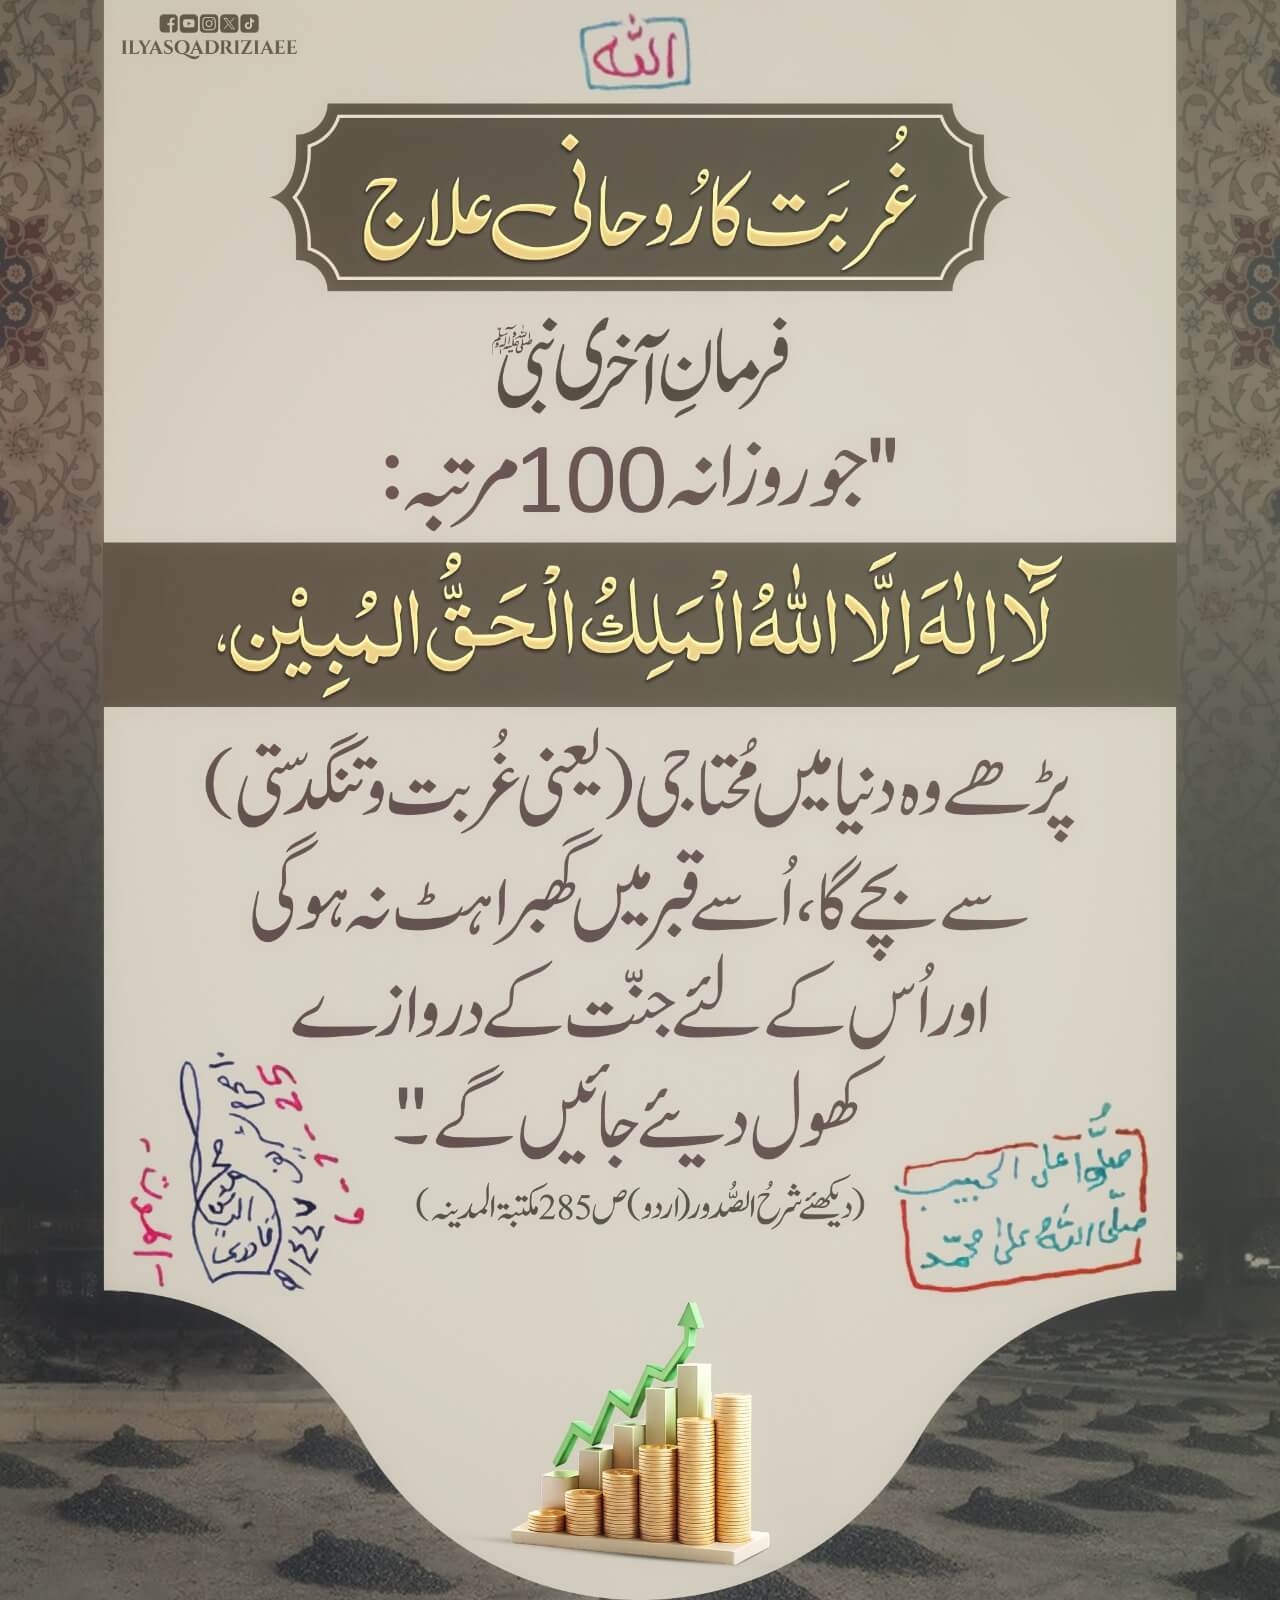 ILYASQADRIZIAEE
الله
غُربَت کا رُوحانی علاج
فرمانِ آخری نبی ﷺ
"جو روزانہ 100 مرتبہ:
لَآ اِلٰهَ اِلَّا اللّٰهُ الْمَلِكُ الْحَقُّ الْمُبِيْن،
پڑھے وہ دنیا میں مُحتاجی (یعنی غُربت و تنگدستی)
سے بچے گا، اُسے قبر میں گھبراہٹ نہ ہوگی
اور اُس کے لئے جنّت کے دروازے
کھول دیئے جائیں گے۔"
(دیکھئے شرحُ الصُّدور (اردو) ص 285 مکتبۃ المدینہ)
صلُّوا علی الحبیب
صلَّی اللّٰہُ علیٰ محمّد
9-1-25
الموت